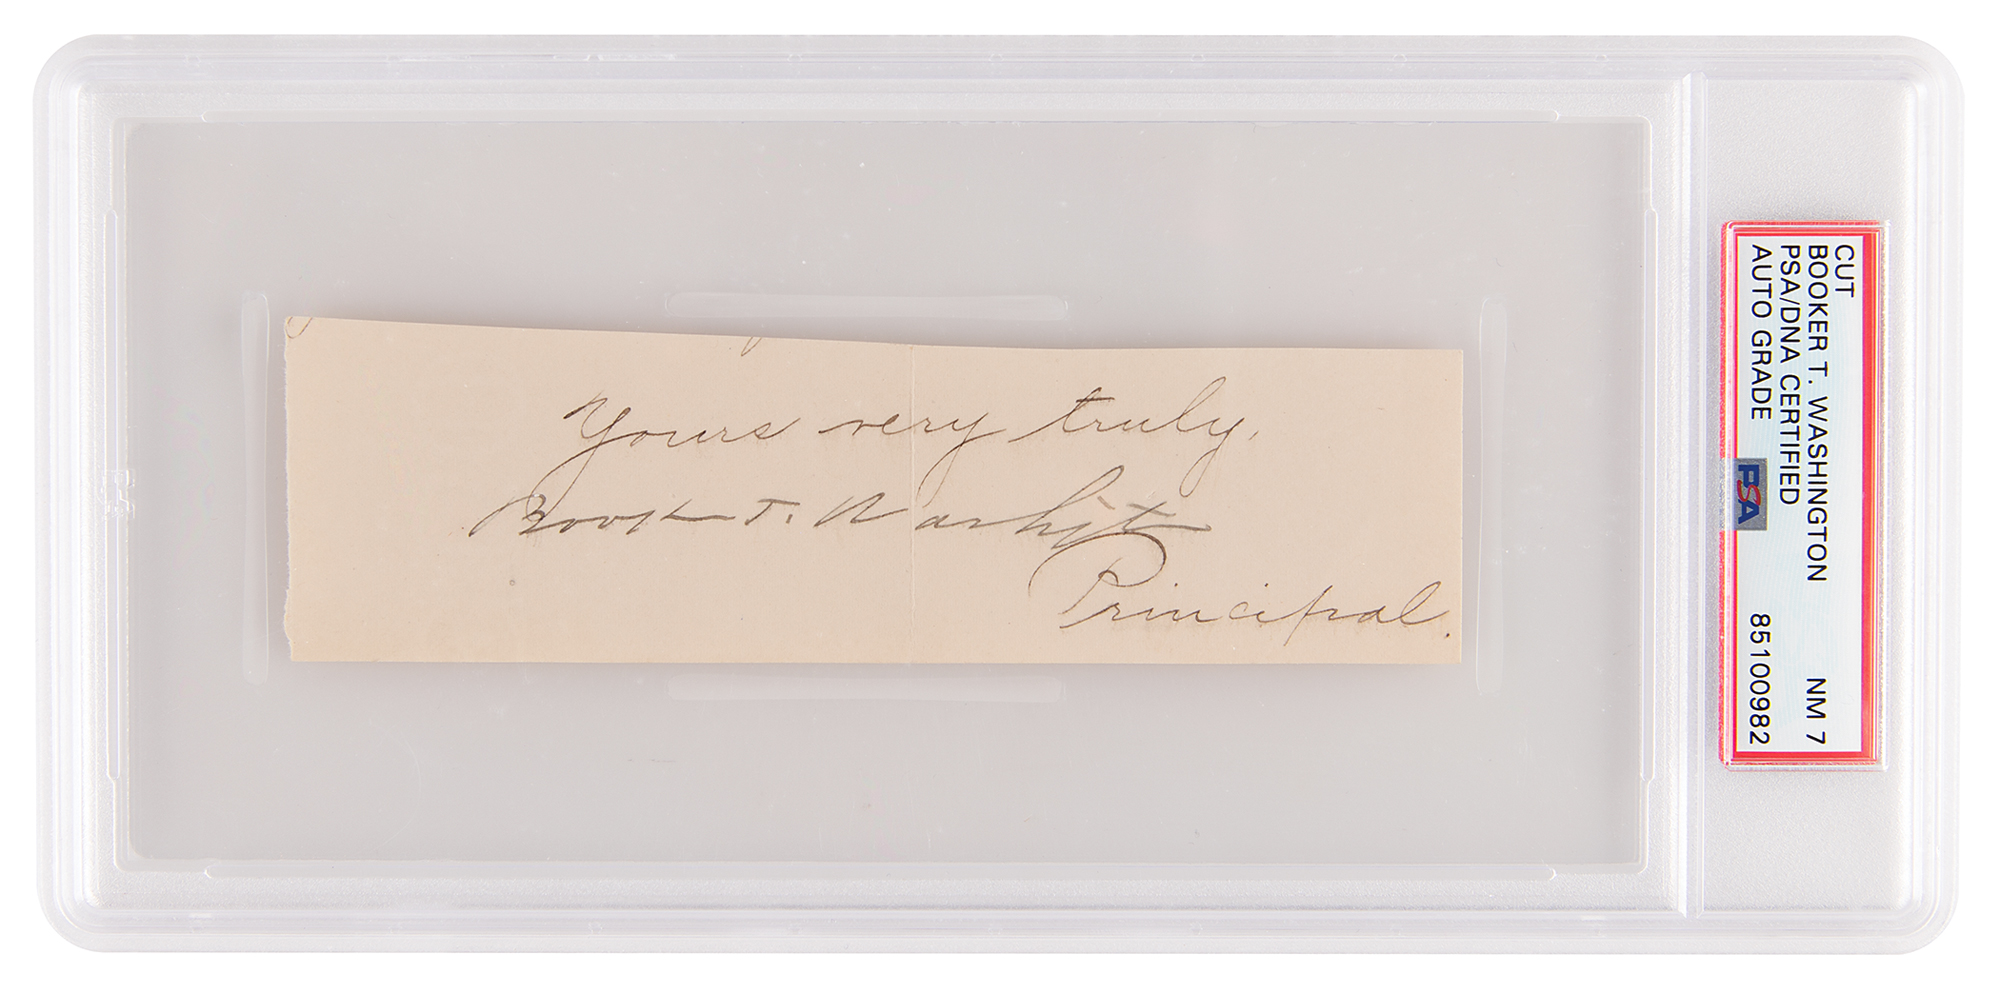 Yours very truly,
Booker T. Washington
Principal.
CUT
BOOKER T. WASHINGTON NM 7
PSA/DNA CERTIFIED
AUTO GRADE 85100982
PSA